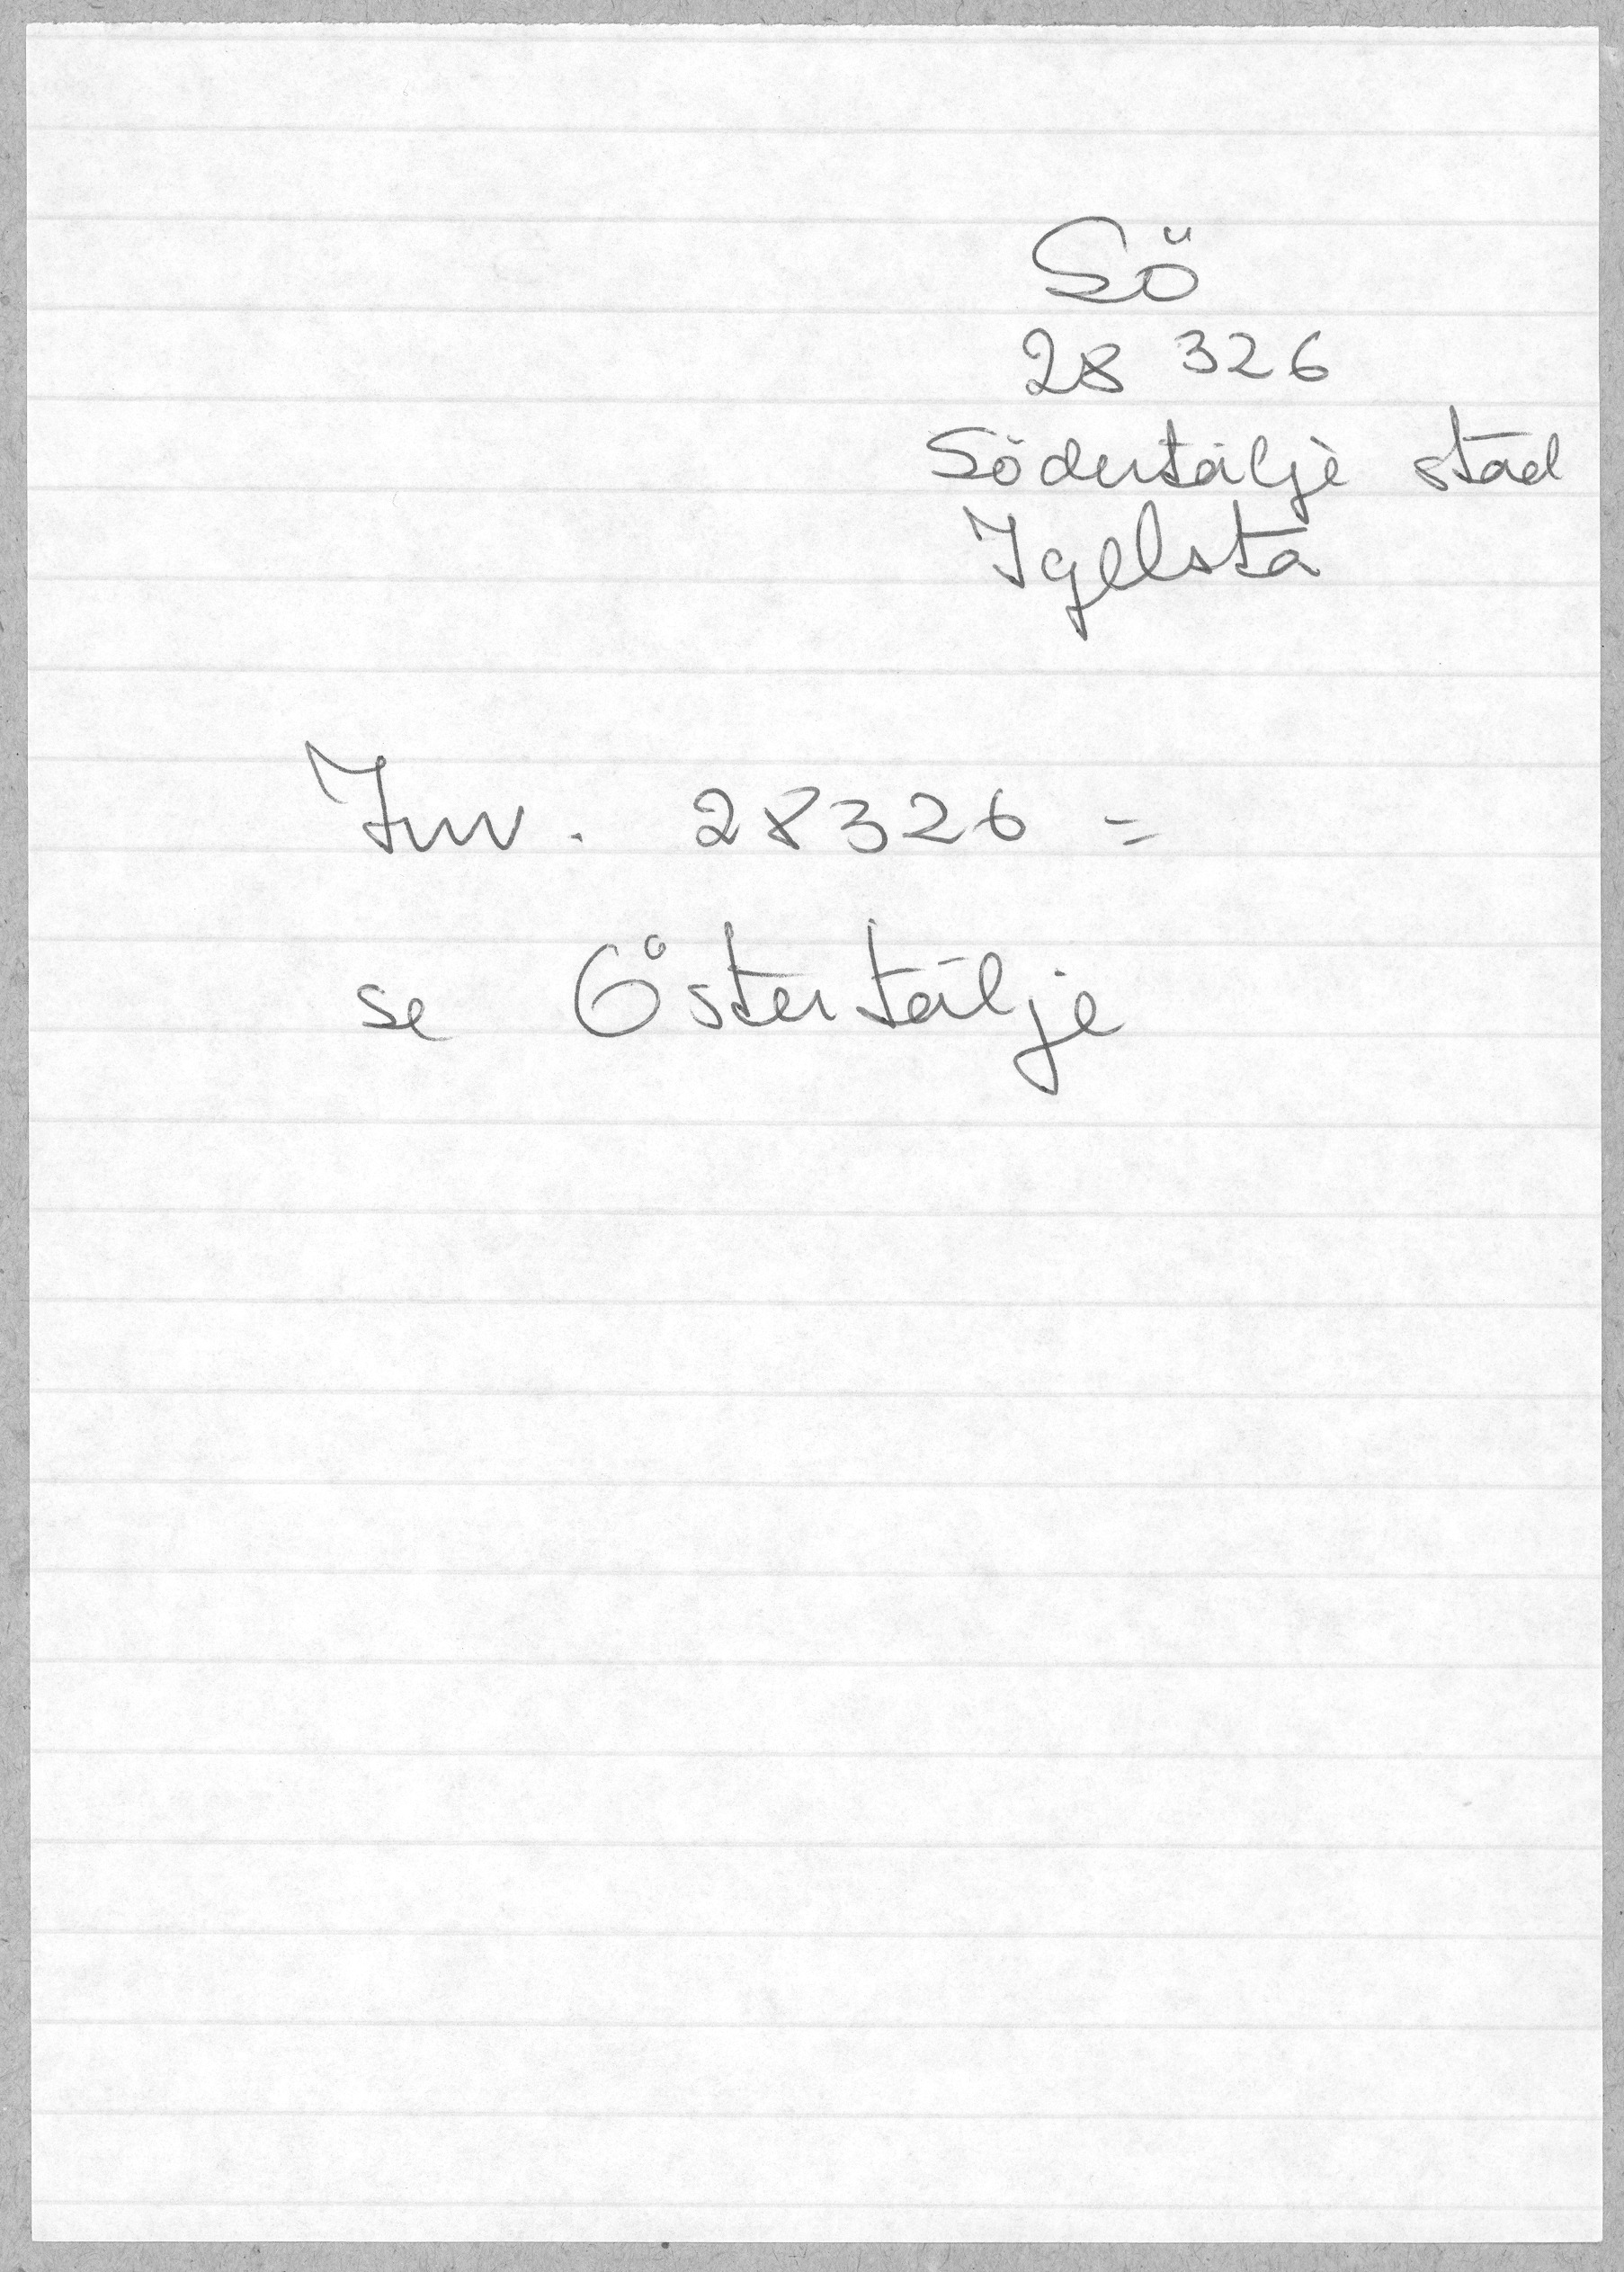 Sö
28 326
Södertälje stad
Igelsta
Inv. 28326 =
se Östertälje